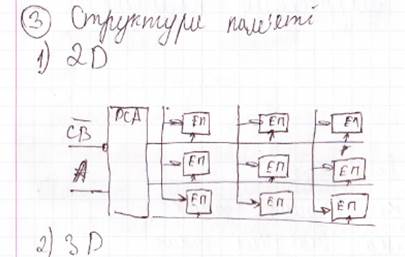 ③ Структури пам'яті
1) 2D
DCA
CB
A
ЕП ЕП ЕП
ЕП ЕП ЕП
ЕП ЕП ЕП
2) 3D